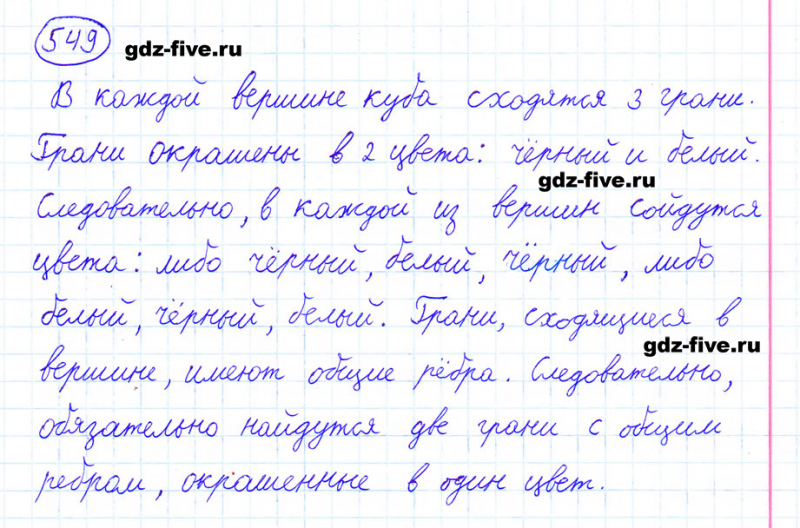 549 gdz-five.ru
В каждой вершине куба сходятся 3 грани.
Грани окрашены в 2 цвета: чёрный и белый.
gdz-five.ru
Следовательно, в каждой из вершин сойдутся
цвета: либо чёрный, белый, чёрный, либо
белый, чёрный, белый. Грани, сходящиеся в
gdz-five.ru
вершине, имеют общие рёбра. Следовательно,
обязательно найдутся две грани с общим
ребром, окрашенные в один цвет.